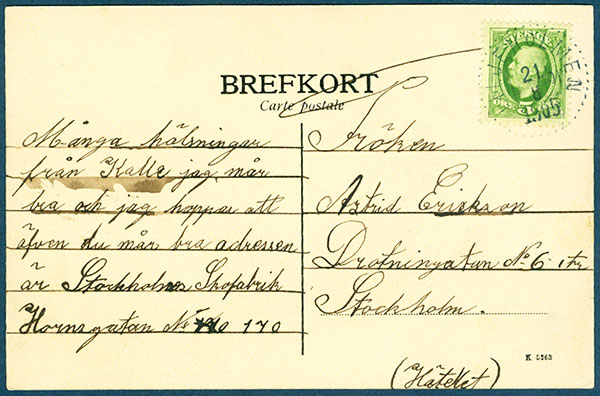 BREFKORT
Carte postale
Många hälsningar
från Kalle jag mår
bra och jag hoppas att
äfven du mår bra adressen
är Stockholms Skofabrik
Hornsgatan No 170
Fröken
Astrid Erickson
Drotningatan No 6 1 tr
Stockholm.
(Hötellet)
SVERIGE
21
8
1905
K 5263